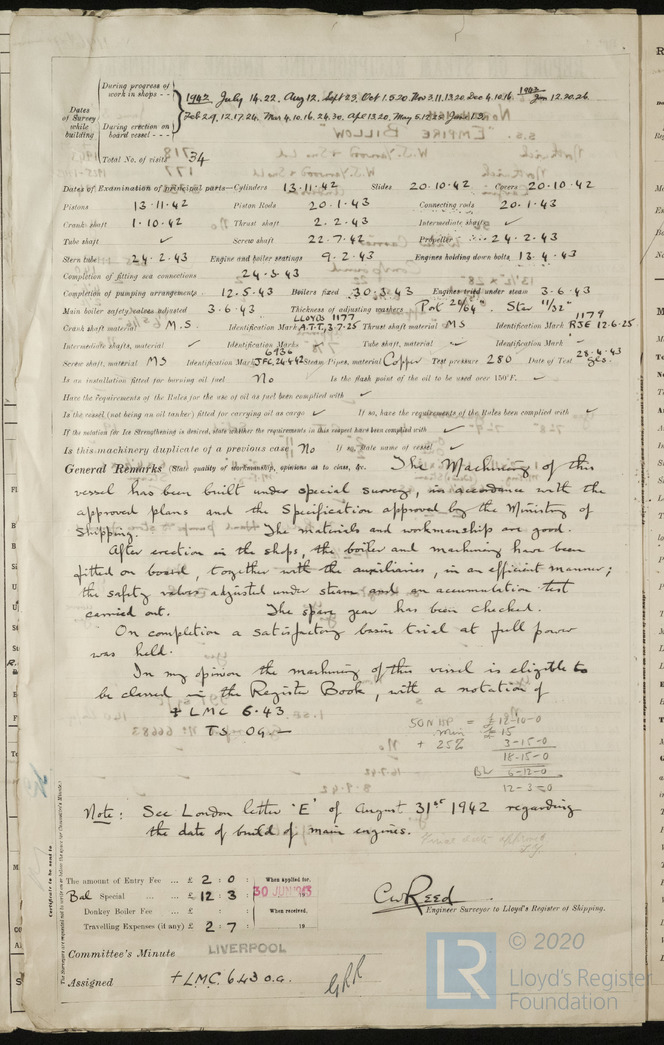 During progress of work in shops - - 1942 July 14.22. Aug 12. Sept 23. Oct 1.5.20. Nov 3.11.13.20 Dec 4.10.16 1943 Jan 12.20.26.
Dates of Survey while building
During erection on board vessel - - - Feb 2.9.12.17.24. Mar 4.10.16.24.30. Apl 13.20. May 5.12.22. June 1.3.
Total No. of visits 34
Dates of Examination of principal parts—Cylinders 13.11.42 Slides 20.10.42 Covers 20.10.42
Pistons 13.11.42 Piston Rods 20.1.43 Connecting rods 20.1.43
Crank shaft 1.10.42 Thrust shaft 2.2.43 Intermediate shafts ✓
Tube shaft ✓ Screw shaft 22.7.42 Propeller 24.2.43
Stern tube 24.2.43 Engine and boiler seatings 9.2.43 Engines holding down bolts 13.4.43
Completion of fitting sea connections 24.3.43
Completion of pumping arrangements 12.5.43 Boilers fixed 30.3.43 Engines tried under steam 3.6.43
Main boiler safety valves adjusted 3.6.43 Thickness of adjusting washers Port 20/64" Star 11/32"
Crank shaft material M.S. Identification Mark LLOYDS 1177 A.T.T. 3.7.25 Thrust shaft material MS Identification Mark 1179 RJE 12.6.25
Intermediate shafts, material ✓ Identification Marks ✓ Tube shaft, material ✓ Identification Mark ✓
Screw shaft, material MS Identification Mark 6936 JFC.24.4.42 Steam Pipes, material Copper Test pressure 280 Date of Test 28.4.43
Is an installation fitted for burning oil fuel No Is the flash point of the oil to be used over 150°F. ✓
Have the requirements of the Rules for the use of oil as fuel been complied with ✓
Is the vessel (not being an oil tanker) fitted for carrying oil as cargo ✓ If so, have the requirements of the Rules been complied with ✓
If the notation for Ice Strengthening is desired, state whether the requirements in this respect have been complied with ✓
Is this machinery duplicate of a previous case No If so, state name of vessel ✓
General Remarks (State quality of workmanship, opinions as to class, &c. The Machinery of this
vessel has been built under special survey, in accordance with the
approved plans and the Specification approved by the Ministry of
Shipping. The materials and workmanship are good.
After erection in the shops, the boiler and machinery have been
fitted on board, together with the auxiliaries, in an efficient manner;
the safety valves adjusted under steam and an accumulation test
carried out. The spare gear has been checked.
On completion a satisfactory basin trial at full power
was held.
In my opinion the machinery of this vessel is eligible to
be classed in the Register Book, with a notation of
+ LMC 6.43
TS OG.
50 NHP = £18-10-0
min £15
+ 25% 3-15-0
18-15-0
BL 6-12-0
12-3-0
Note: See London letter 'E' of August 31st 1942 regarding
the date of build of main engines.
Certificate to be sent to
The amount of Entry Fee ... £ 2 : 0 : When applied for,
Bal Special ... £ 12 : 3 : 30 JUN 1943
Donkey Boiler Fee ... £ : : When received,
Travelling Expenses (if any) £ 2 : 7 : 19
CW Reed
Engineer Surveyor to Lloyd's Register of Shipping.
Committee's Minute LIVERPOOL
Assigned + LMC. 6.43 O.G.
GRR
© 2020
LR
Lloyd's Register
Foundation